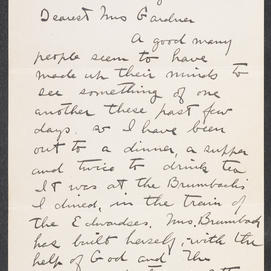 Dearest Mrs Gardner
A good many
people seem to have
made up their minds to
see something of one
another these past few
days. so I have been
out to a dinner, a supper
and twice to drink tea
It was at the Brumbachs
I dined, in the train of
the Edwardses. Mrs. Brumbach
has built herself, with the
help of God and the